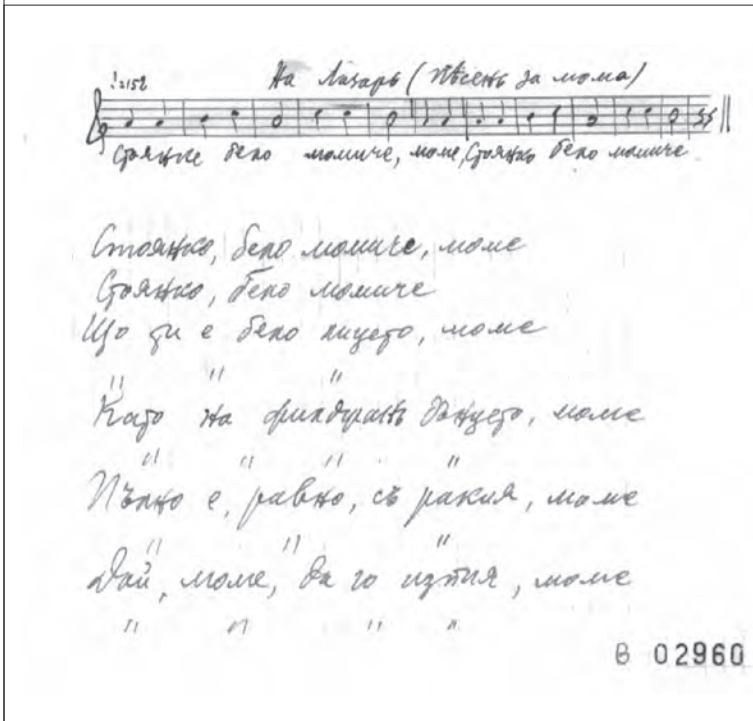 ♩=152 На Лазарь (Пѣсень за мома)
Стоянке бело момиче, моме, Стоянко бело момиче
Стоянко, бело момиче, моме
Стоянко, бело момиче
Що ти е бело лицето, моме
" " "
Като на филджань дънцето, моме
" " " "
Пълно е, равно, съ ракия, моме
" " "
Дай, моме, да го изпия, моме
" " " "
В 02960